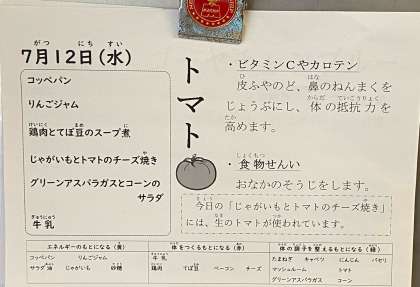 7月12日(水)
コッペパン
りんごジャム
鶏肉とてぼ豆のスープ煮
じゃがいもとトマトのチーズ焼き
グリーンアスパラガスとコーンの
サラダ
牛乳
トマト
・ビタミンCやカロテン
皮ふやのど、鼻のねんまくを
じょうぶにし、体の抵抗力を
高めます。
・食物せんい
おなかのそうじをします。
今日の「じゃがいもとトマトのチーズ焼き」
には、生のトマトが使われています。
エネルギーのもとになる(黄)
コッペパン りんごジャム
サラダ油 じゃがいも 砂糖
体をつくるもとになる(赤)
牛乳
鶏肉 てぼ豆 ベーコン チーズ
体の調子を整えるもとになる(緑)
たまねぎ キャベツ にんじん パセリ
マッシュルーム トマト
グリーンアスパラガス コーン